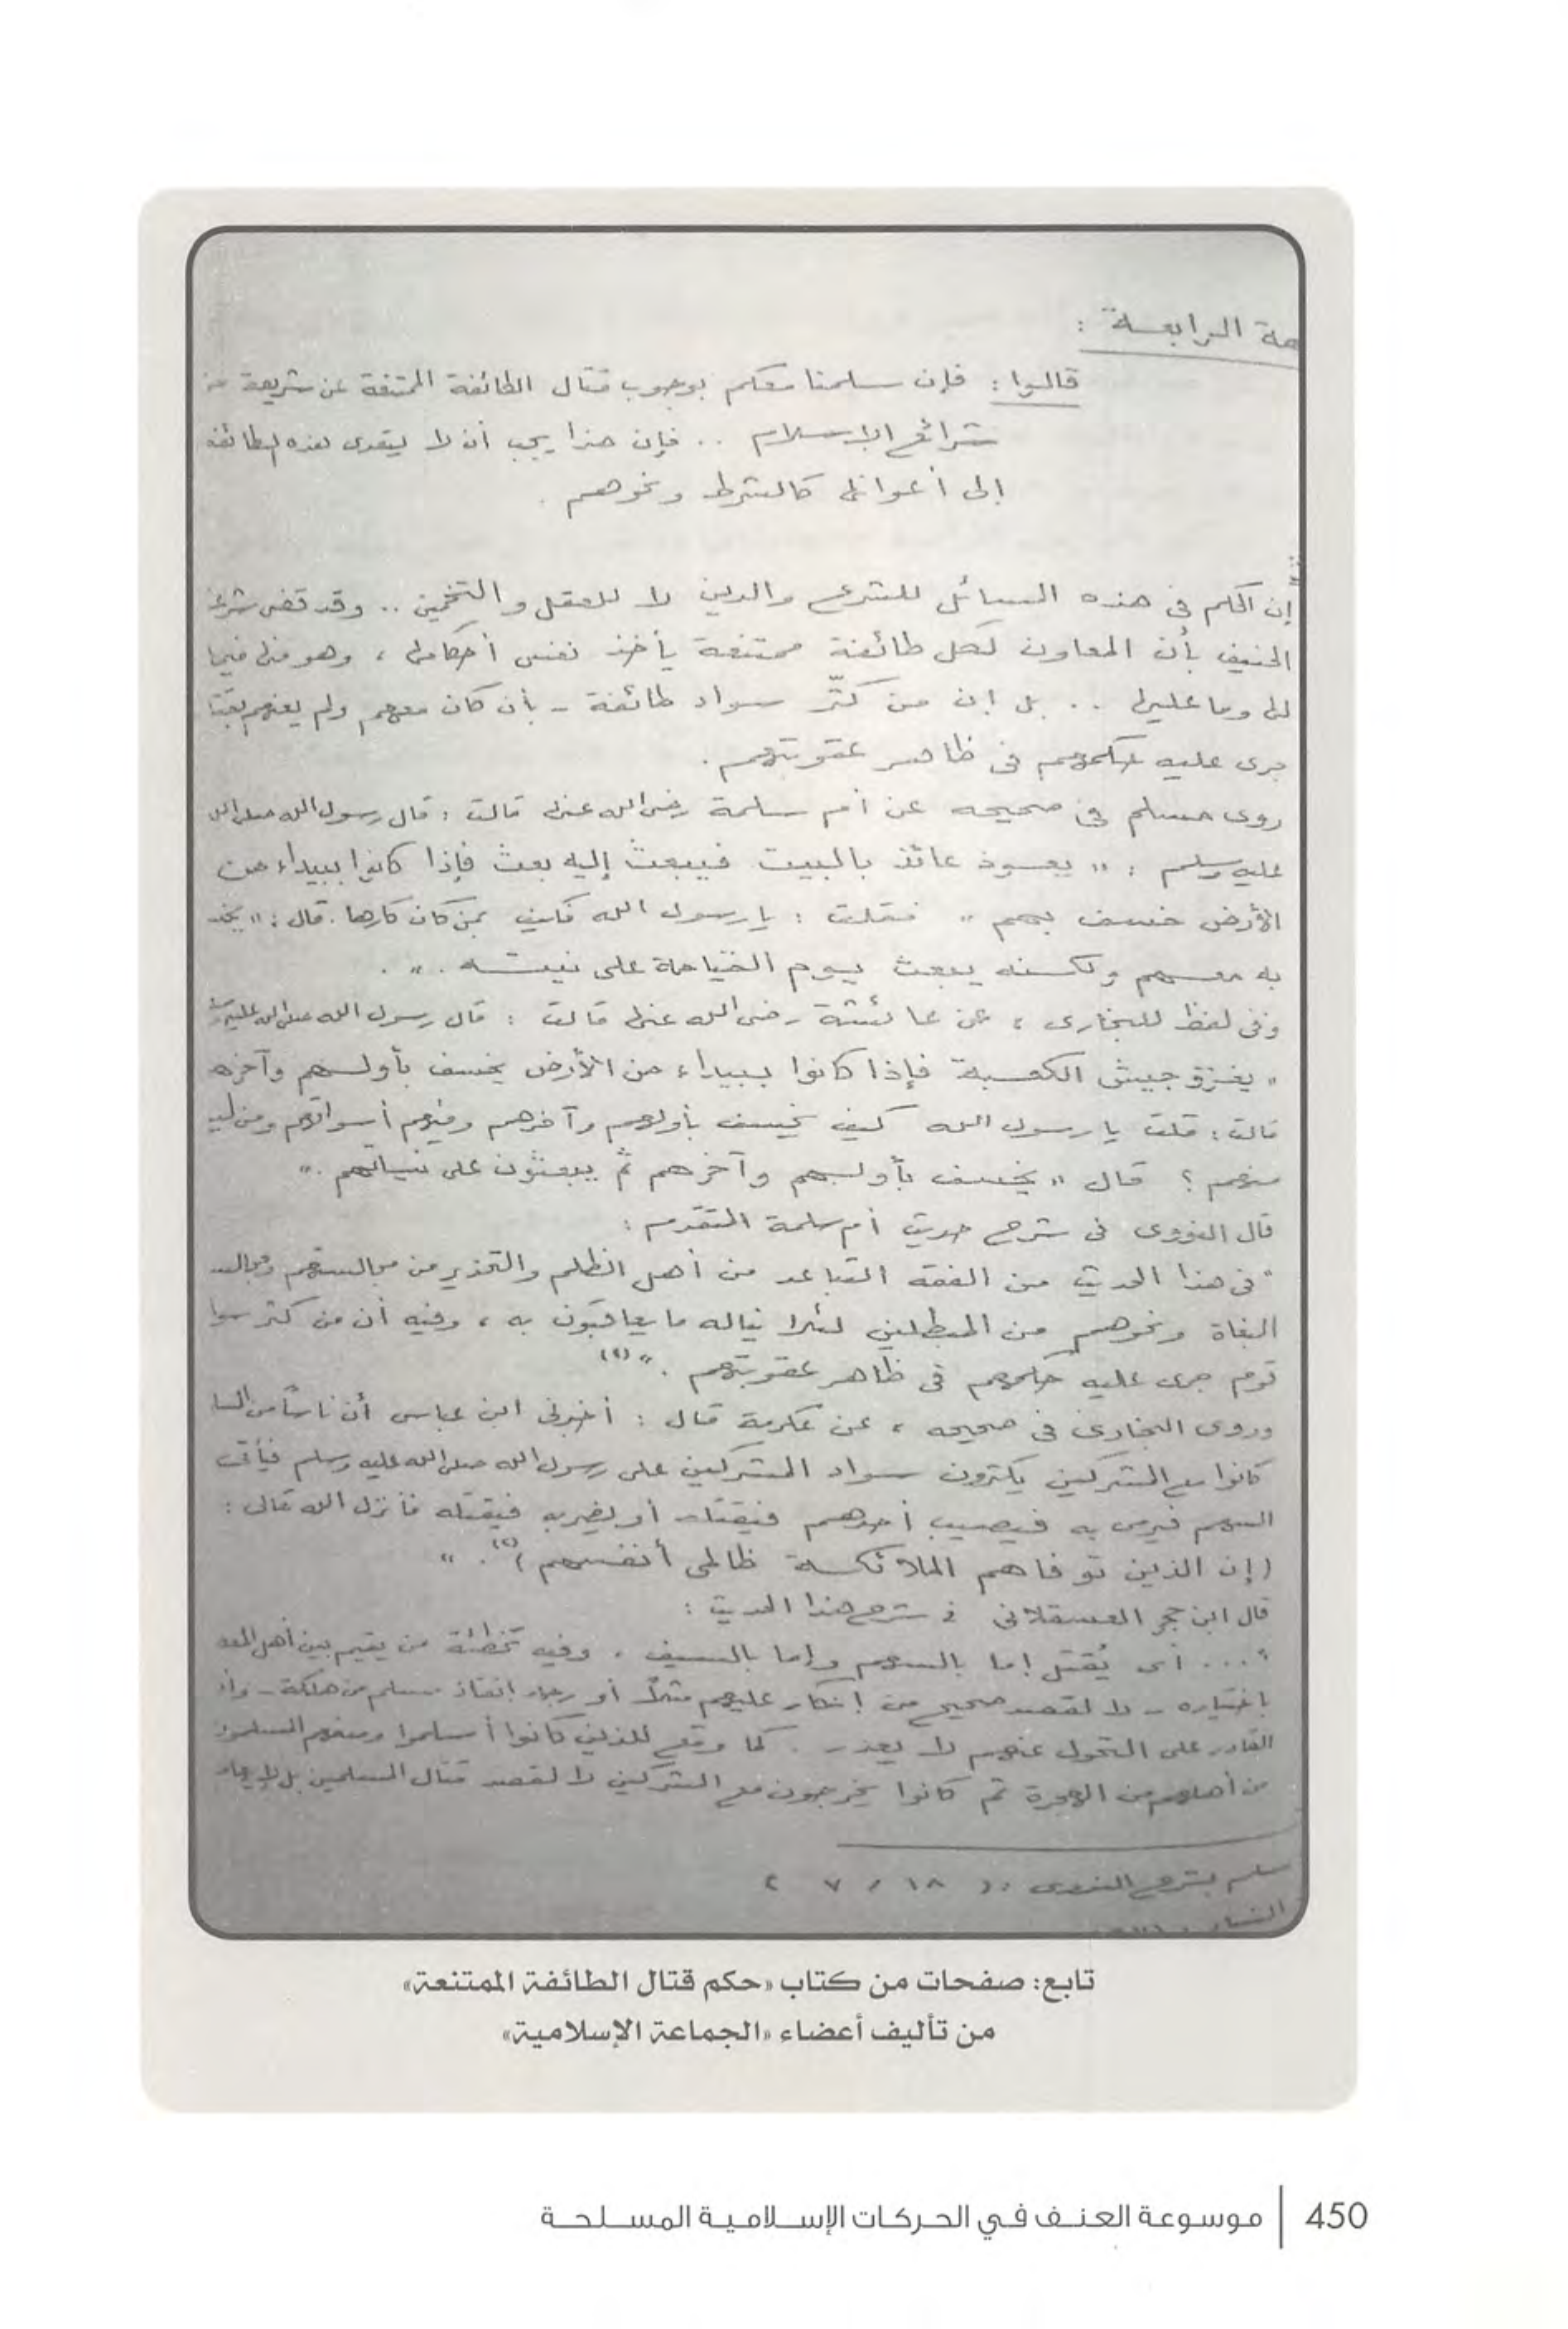 ـهة الرابعة :
قالوا : فإن سلمنا معكم بوجوب قتال الطائفة الممتنعة عن شريعة من
شرائع الإسلام .. فإن هذا يجب أن لا يتعدى هذه الطائفة
إلى أعوانها كالشرط ونحوهم .
إن الحكم فى هذه المسائل للشرع والدين لا للعقل والتخمين .. وقد قضى شرعنا
الحنيف بأن المعاون لكل طائفة ممتنعة يأخذ نفس أحكامها ، وهو منها فيما
لها وما عليها .. بل إن من كثّر سواد طائفة - بأن كان معهم ولم يعنهم
جرى عليه حكمهم فى ظاهر عقوبتهم .
روى مسلم فى صحيحه عن أم سلمة رضى الله عنها قالت : قال رسول الله صلى الله
عليه وسلم : " يعوذ عائذ بالبيت فيبعث إليه بعث فإذا كانوا ببيداء من
الأرض خسف بهم " فقلت : يا رسول الله فكيف بمن كان كارها . قال : " يخسف
به معهم ولكنه يبعث يوم القيامة على نيته . " .
وفى لفظ للبخارى ، عن عائشة رضى الله عنها قالت : قال رسول الله صلى الله عليه وسلم
" يغزو جيش الكعبة فإذا كانوا ببيداء من الأرض يخسف بأولهم وآخرهم
قالت : قلت يا رسول الله كيف يخسف بأولهم وآخرهم وفيهم أسواقهم ومن ليس
منهم ؟ قال " يخسف بأولهم وآخرهم ثم يبعثون على نياتهم . "
قال النووى فى شرح حديث أم سلمة المتقدم :
" فى هذا الحديث من الفقه التباعد من أهل الظلم والتحذير من مجالستهم ومجالسة
البغاة ونحوهم من المبطلين لئلا يناله ما يعاقبون به ، وفيه أن من كثر سواد
قوم جرى عليه حكمهم فى ظاهر عقوبتهم . " (١)
وروى البخارى فى صحيحه ، عن عكرمة قال : أخبرنى ابن عباس أن ناسًا من المسلمين
كانوا مع المشركين يكثرون سواد المشركين على رسول الله صلى الله عليه وسلم فيأتى
السهم فيرمى به فيصيب أحدهم فيقتله أو يضربه فيقتله فأنزل الله تعالى :
( إن الذين توفاهم الملائكة ظالمى أنفسهم )(٢) . "
قال ابن حجر العسقلانى فى شرح هذا الحديث :
" ... أى يُقتل إما بالسهم وإما بالسيف . وفيه تخطئة من يقيم بين أهل المعصية
باختياره - لا لقصد صحيح من إنكار عليهم مثلًا أو رجاء إنقاذ مسلم من هلكة - وأن
القادر على التحول عنهم لا يعذر - . كما وقع للذين كانوا أسلموا ومنعهم المشركون
من أهلهم من الهجرة ثم كانوا يخرجون مع المشركين لا لقصد قتال المسلمين بل لإيهام
مسلم بشرح النووى .. ( ١٨ / ٧ )
النساء
تابع: صفحات من كتاب «حكم قتال الطائفة الممتنعة»
من تأليف أعضاء «الجماعة الإسلامية»
450 | موسوعة العنف في الحركات الإسلامية المسلحة